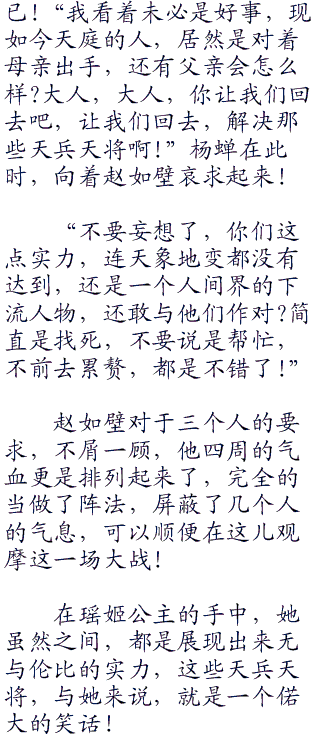 已！“我看着未必是好事，现
如今天庭的人，居然是对着
母亲出手，还有父亲会怎么
样？大人，大人，你让我们回
去吧，让我们回去，解决那
些天兵天将啊！”杨蝉在此
时，向着赵如壁哀求起来！
“不要妄想了，你们这
点实力，连天象地变都没有
达到，还是一个人间界的下
流人物，还敢与他们作对？简
直是找死，不要说是帮忙，
不前去累赘，都是不错了！”
赵如壁对于三个人的要
求，不屑一顾，他四周的气
血更是排列起来了，完全的
当做了阵法，屏蔽了几个人
的气息，可以顺便在这儿观
摩这一场大战！
在瑶姬公主的手中，她
虽然之间，都是展现出来无
与伦比的实力，这些天兵天
将，与她来说，就是一个偌
大的笑话！